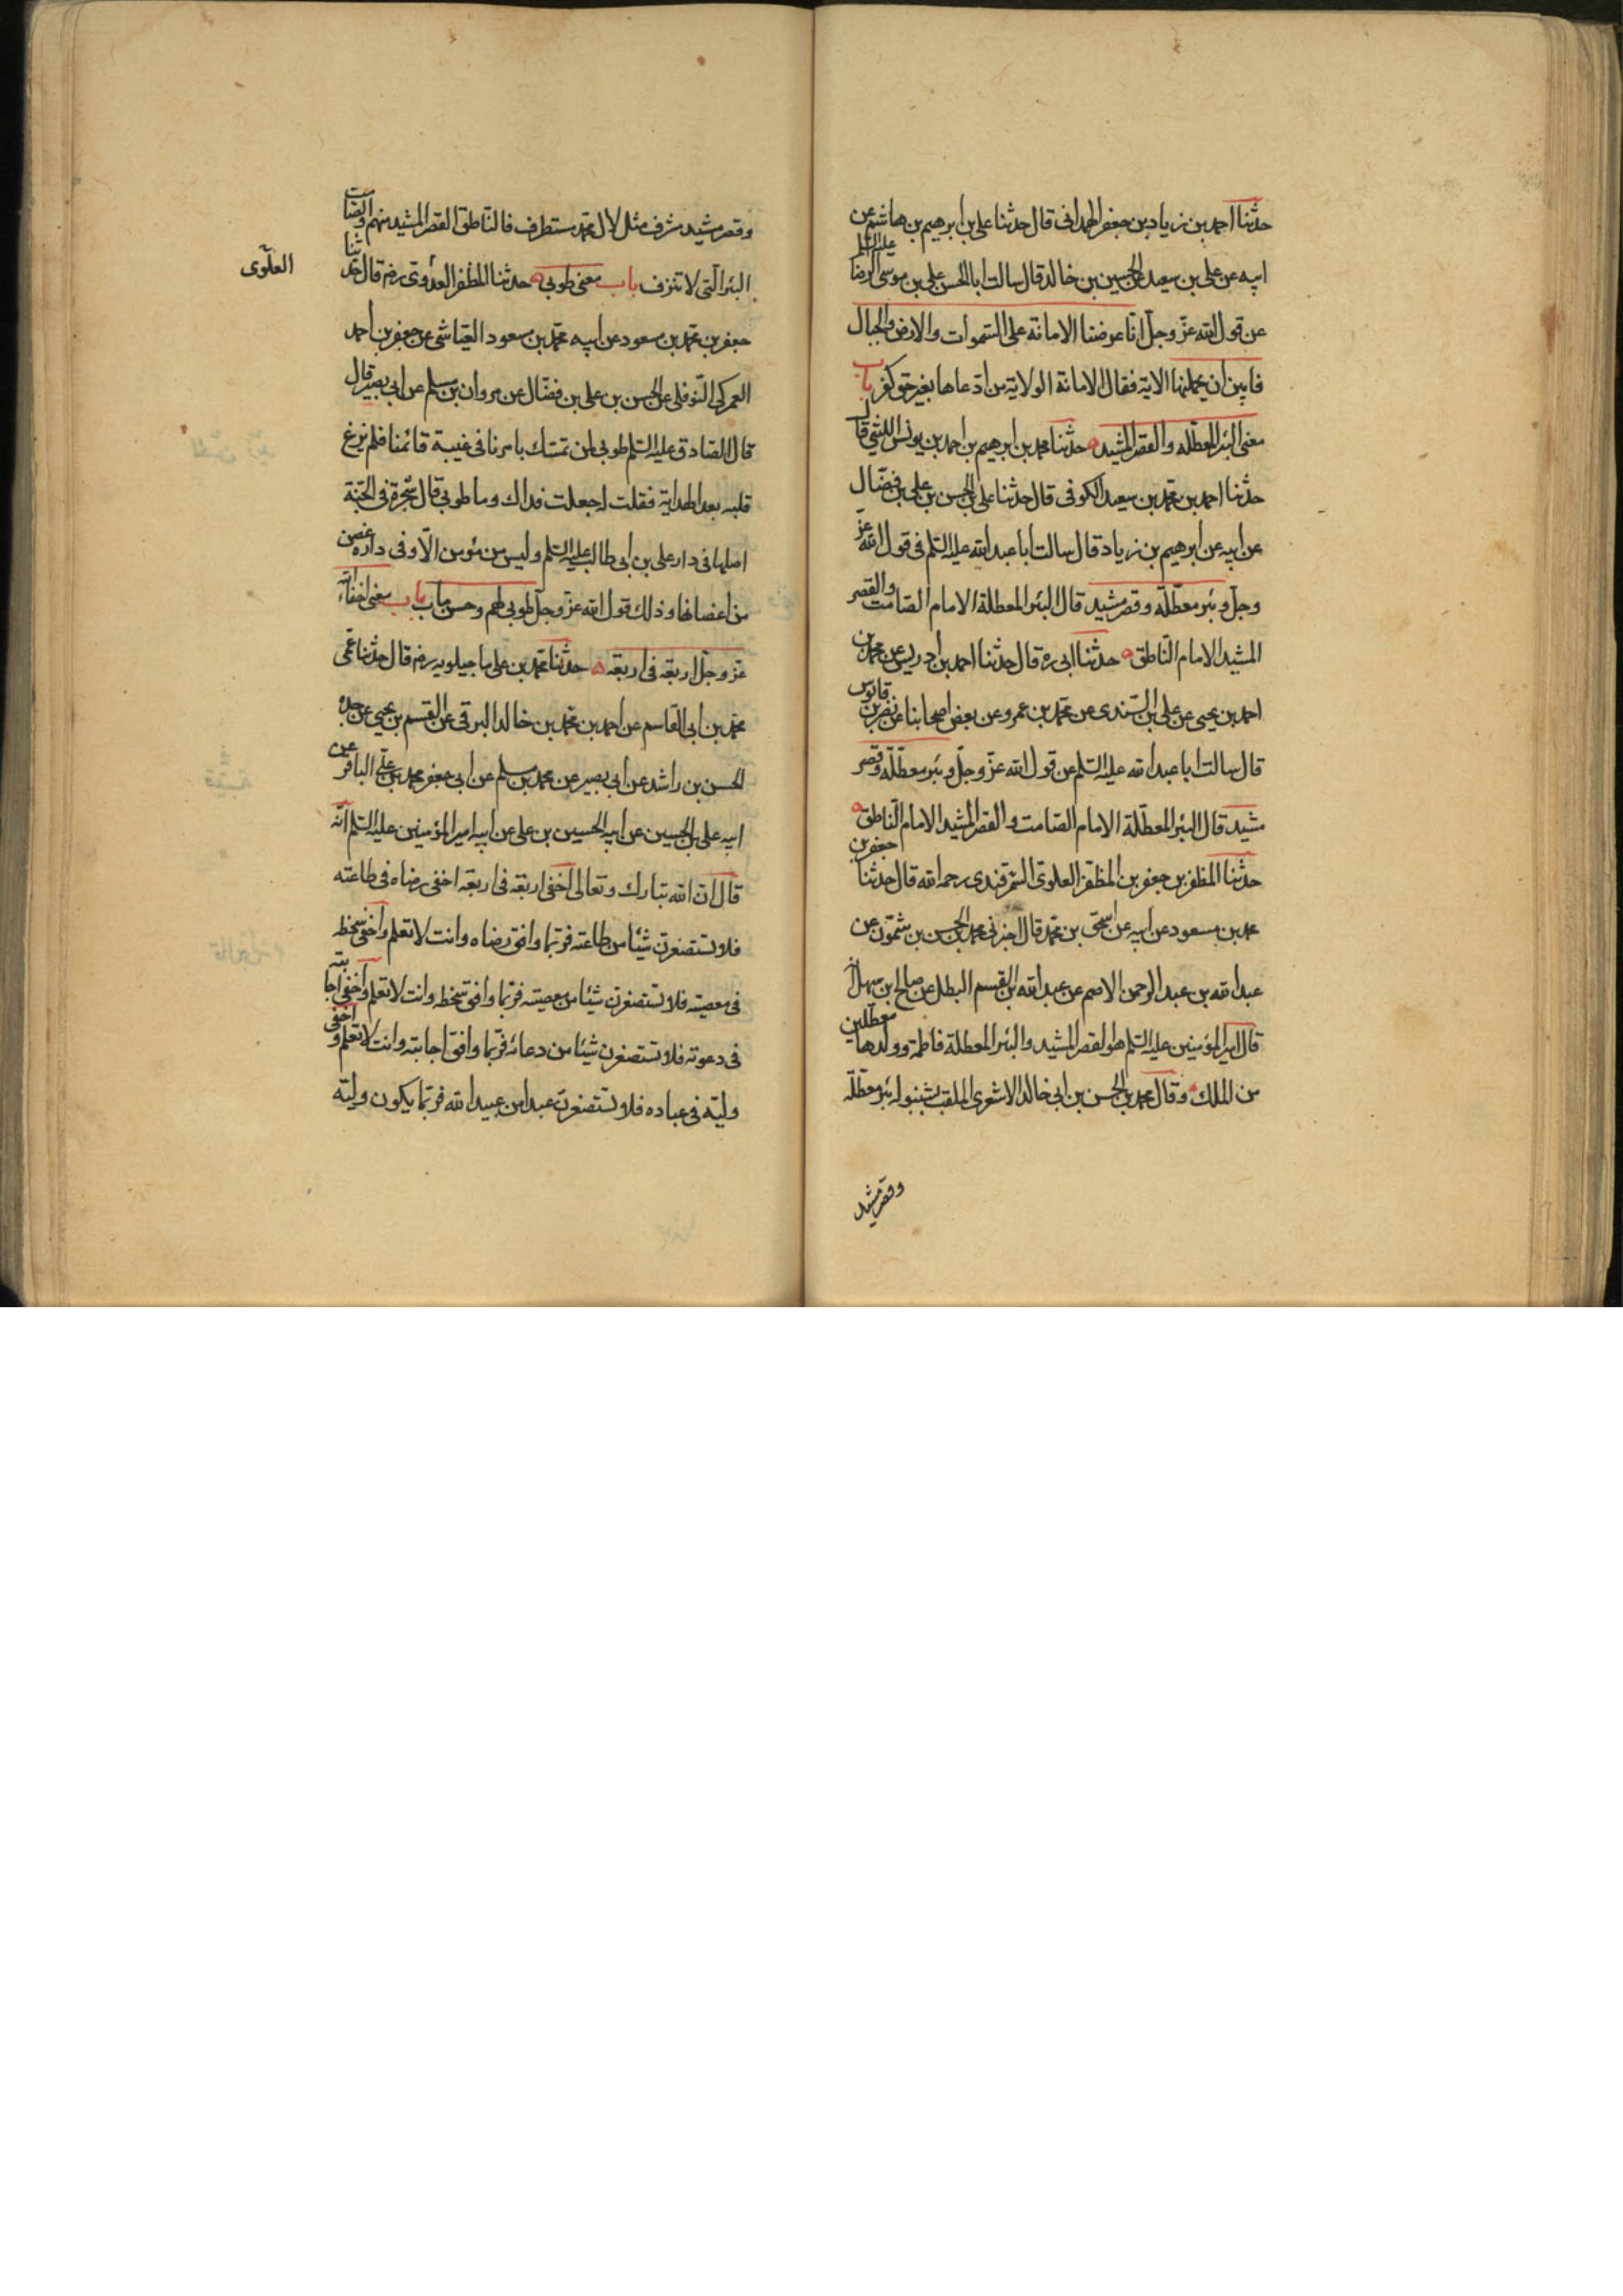 حدثنا احمد بن زياد بن جعفر الهمدانى قال حدثنا على بن ابرهيم بن هاشم عن
ابيه عن على بن سعيد عن الحسين بن خالد قال سالت ابا الحسن على بن موسى الرضا عليه السلم
عن قول الله عز وجل انا عرضنا الامانة على السموات والارض والجبال
فابين ان يحملنها الاية فقال الامانة الولاية من ادعاها بغير حق كفر باب
معنى البئر المعطله والقصر المشيد حدثنا محمد بن ابرهيم بن احمد بن يونس الليثى قال
حدثنا احمد بن محمد بن سعيد الكوفى قال حدثنا على بن الحسن بن على بن فضال
عن ابيه عن ابرهيم بن زياد قال سالت ابا عبد الله عليه السلم فى قول الله عز
وجل وبئر معطلة وقصر مشيد قال البئر المعطلة الامام الصامت والقصر
المشيد الامام الناطق حدثنا ابى ره قال حدثنا احمد بن ادريس عن محمد بن
احمد بن يحيى عن على بن السندى عن محمد بن عمرو عن بعض اصحابنا عن نصر بن قابوس
قال سالت ابا عبد الله عليه السلم عن قول الله عز وجل وبئر معطلة وقصر
مشيد قال البئر المعطلة الامام الصامت والقصر المشيد الامام الناطق
حدثنا المظفر بن جعفر بن المظفر العلوى السمرقندى رحمه الله قال حدثنا جعفر بن
محمد بن مسعود عن ابيه عن اسحق بن محمد قال اخبرنى محمد بن الحسن بن شمون عن
عبد الله بن عبد الرحمن الاصم عن عبد الله بن القسم البطل عن صالح ابن سهل انه
قال امير المؤمنين عليه السلم هو القصر المشيد والبئر المعطلة فاطمة وولدها معطلين
من الملك وقال محمد بن الحسن بن ابى خالد الاشعرى الملقب بشنبوله بئر معطلة
وقصر مشيد
وقصر مشيد مشرف مثل لال محمد مستطرف فالناطق القصر المشيد منهم والصامت
البئر التى لا تنزف باب معنى طوبى حدثنا المظفر العلوى رضه قال حدثنا
العلوى
جعفر بن محمد بن مسعود عن ابيه محمد بن مسعود العياشى عن جعفر بن احمد
العمركى النوفلى عن الحسن بن على بن فضال عن مروان بن مسلم عن ابى بصير قال
قال الصادق عليه السلم طوبى لمن تمسك بامرنا فى غيبة قائمنا فلم يزغ
قلبه بعد الهداية فقلت له جعلت فداك وما طوبى قال شجرة فى الجنة
اصلها فى دار على بن ابى طالب عليه السلم وليس من مؤمن الا وفى داره غصن
من اغصانها وذلك قول الله عز وجل طوبى لهم وحسن ماب باب معنى اخفاء الله
عز وجل اربعة فى اربعة حدثنا محمد بن على ماجيلويه رضه قال حدثنا عمى
محمد بن ابى القاسم عن احمد بن محمد بن خالد البرقى عن القسم بن يحيى عن جده
الحسن بن راشد عن ابى بصير عن محمد بن مسلم عن ابى جعفر محمد بن على الباقر عن
ابيه على بن الحسين عن ابيه الحسين بن على عن ابيه امير المؤمنين عليه السلم انه
قال ان الله تبارك وتعالى اخفى اربعة فى اربعة اخفى رضاه فى طاعته
فلا تستصغرن شيئا من طاعته فربما وافق رضاه وانت لا تعلم واخفى سخطه
فى معصيته فلا تستصغرن شيئا من معصيته فربما وافق سخطه وانت لا تعلم واخفى اجابته
فى دعوته فلا تستصغرن شيئا من دعائه فربما وافق اجابته وانت لا تعلم واخفى
وليه فى عباده فلا تستصغرن عبدا من عبيد الله فربما يكون وليه